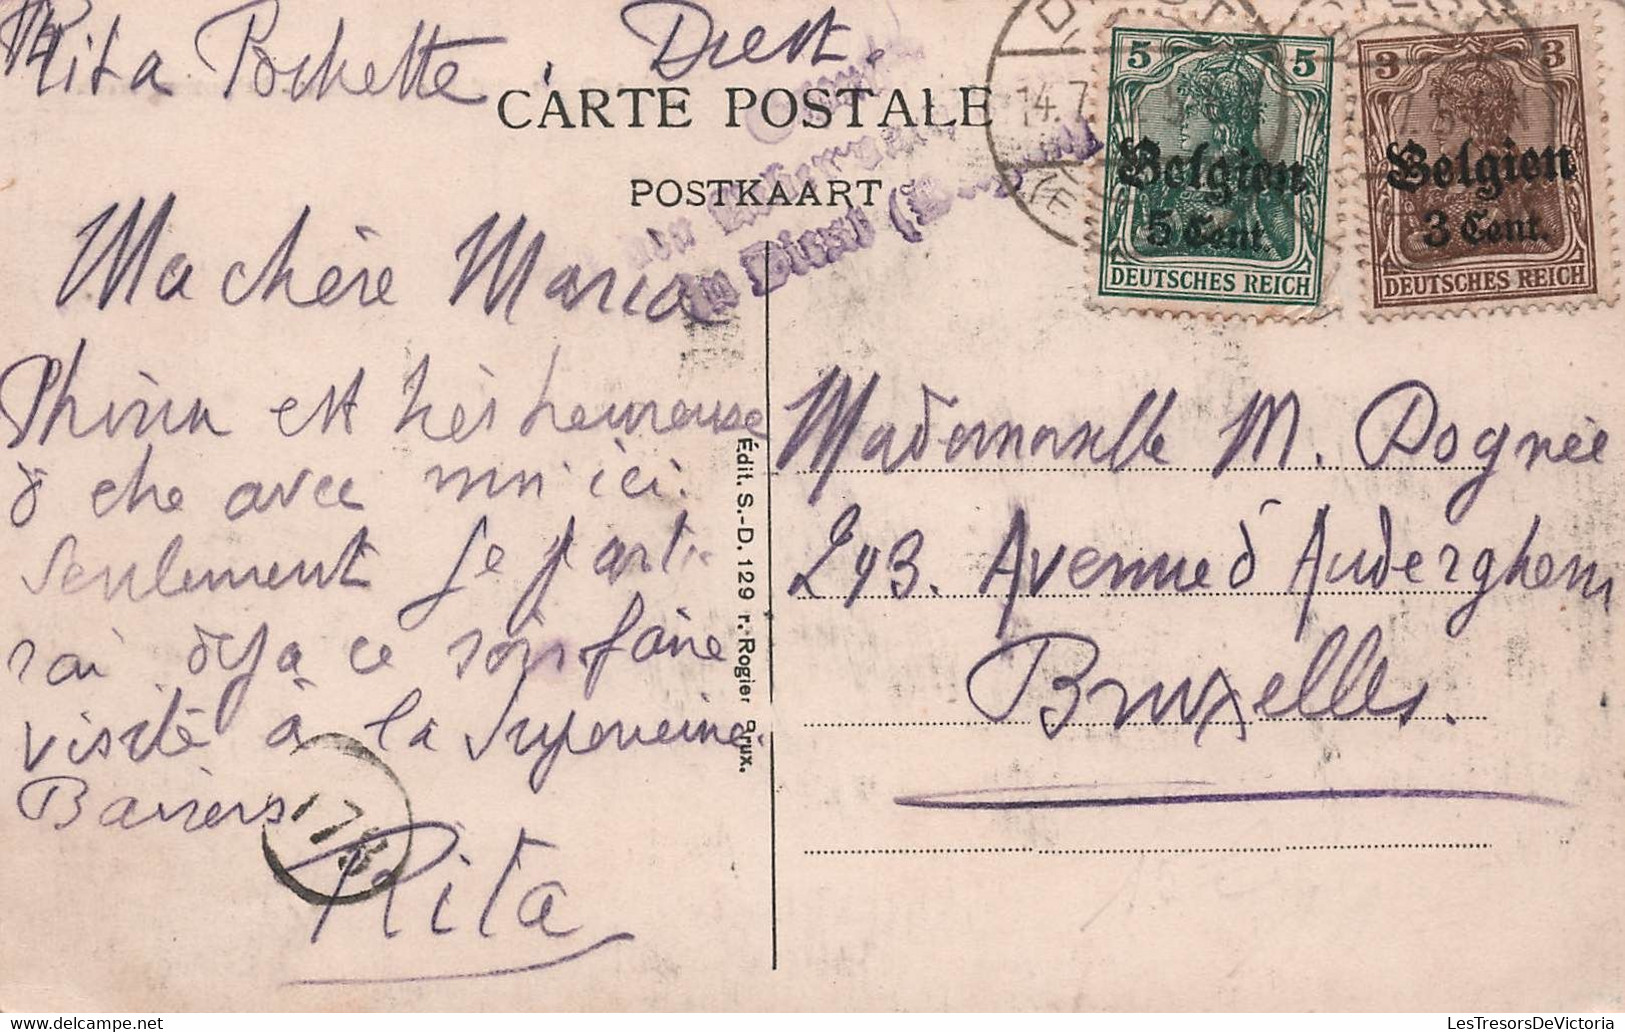 Rita Pochette. Diest.
CARTE POSTALE
POSTKAART
in Diest
14.7
5 5
Belgien
5 Cent.
DEUTSCHES REICH
3 3
Belgien
3 Cent.
DEUTSCHES REICH
Ma chère Maria
est très heureuse
d'être avec moi ici.
Seulement je parti
rai déjà ce soir faire
visite à la Supérieure.
Rita
Édit. S.-D. 129 r. Rogier Brux.
Mademoiselle M. Dognée
243. Avenue d'Auderghem
Bruxelles.
LesTresorsDeVictoria